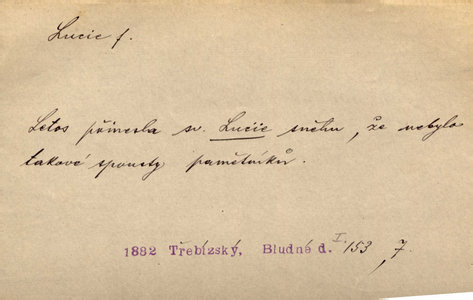 Lucie f.
Letos přinesla sv. Lucie sněhu, že nebylo
takové spousty pamětníků.
1882 Třebízský, Bludné d. I. 153, 7.